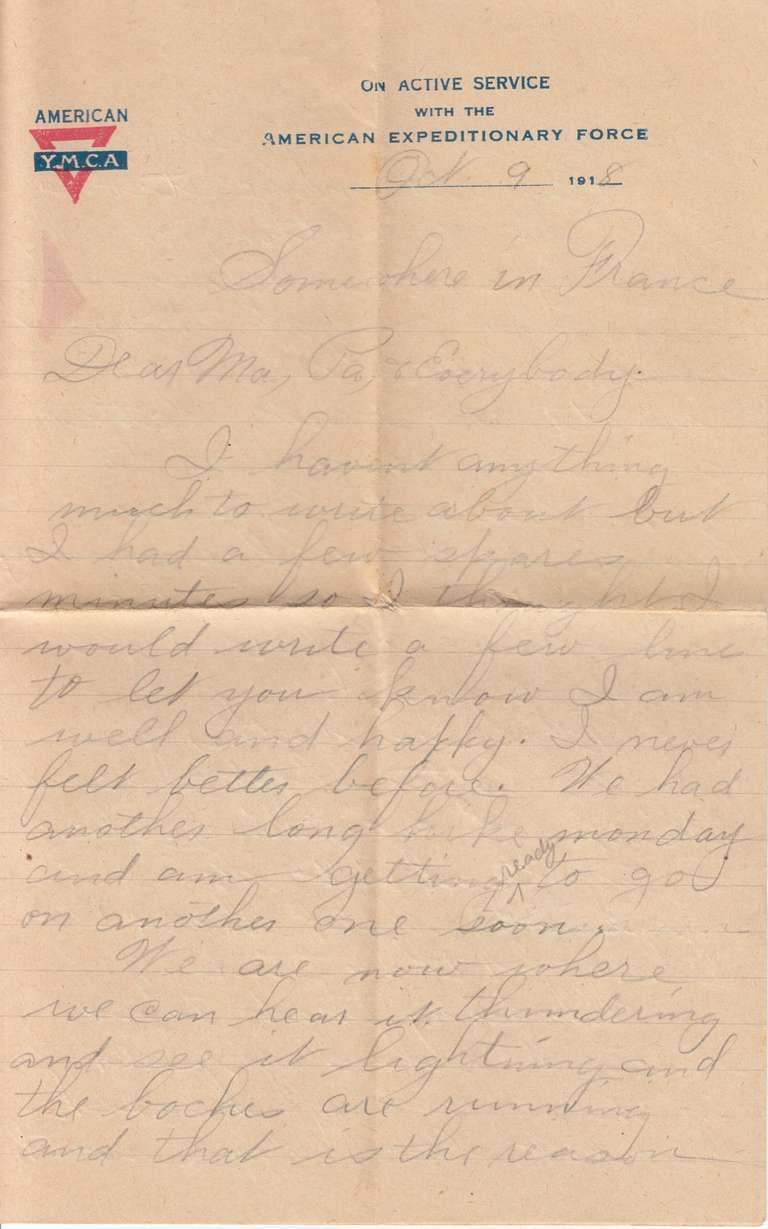 ON ACTIVE SERVICE
WITH THE
AMERICAN EXPEDITIONARY FORCE
AMERICAN
Y.M.C.A
Oct. 9 1918
Somewhere in France
Dear Ma, Pa, & Everybody.
I havent anything
much to write about but
I had a few spare
minutes so I thought I
would write a few line
to let you know I am
well and happy. I never
felt better before. We had
another long hike monday
and am getting ready to go
on another one soon.
We are now where
we can hear it thundering
and see it lightning and
the boches are running
and that is the reason